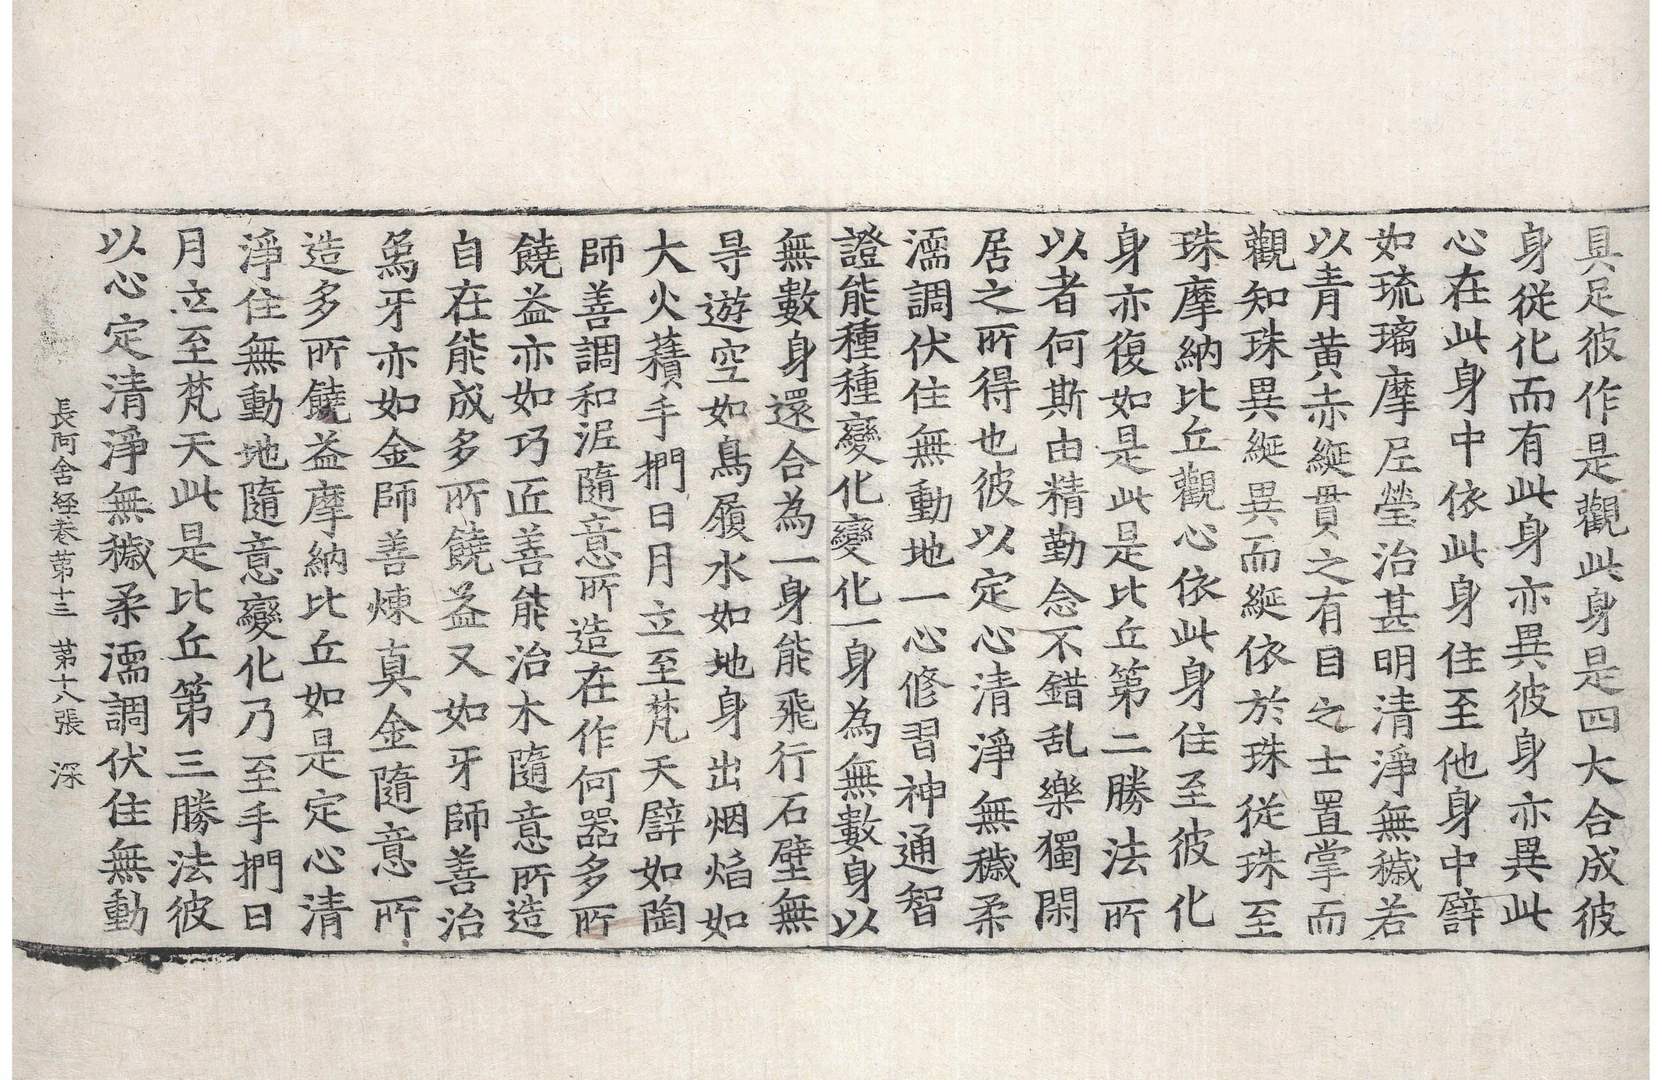 具足彼作是觀此身是四大合成彼
身從化而有此身亦異彼身亦異此
心在此身中依此身住至他身中譬
如琉璃摩尼瑩治甚明清淨無穢若
以青黃赤綖貫之有目之士置掌而
觀知珠異綖異而綖依於珠從珠至
珠摩納比丘觀心依此身住至彼化
身亦復如是此是比丘第二勝法所
以者何斯由精勤念不錯乱樂獨閑
居之所得也彼以定心清淨無穢柔
濡調伏住無動地一心修習神通智
證能種種變化變化一身為無數身以
無數身還合為一身能飛行石壁無
㝵遊空如鳥履水如地身出烟焰如
大火𧂐手捫日月立至梵天譬如陶
師善調和泥隨意所造在作何器多所
饒益亦如巧匠善能治木隨意所造
自在能成多所饒益又如牙師善治
為牙亦如金師善煉真金隨意所
造多所饒益摩納比丘如是定心清
淨住無動地隨意變化乃至手捫日
月立至梵天此是比丘第三勝法彼
以心定清淨無穢柔濡調伏住無動
長阿含経卷苐十三 苐十八張 深